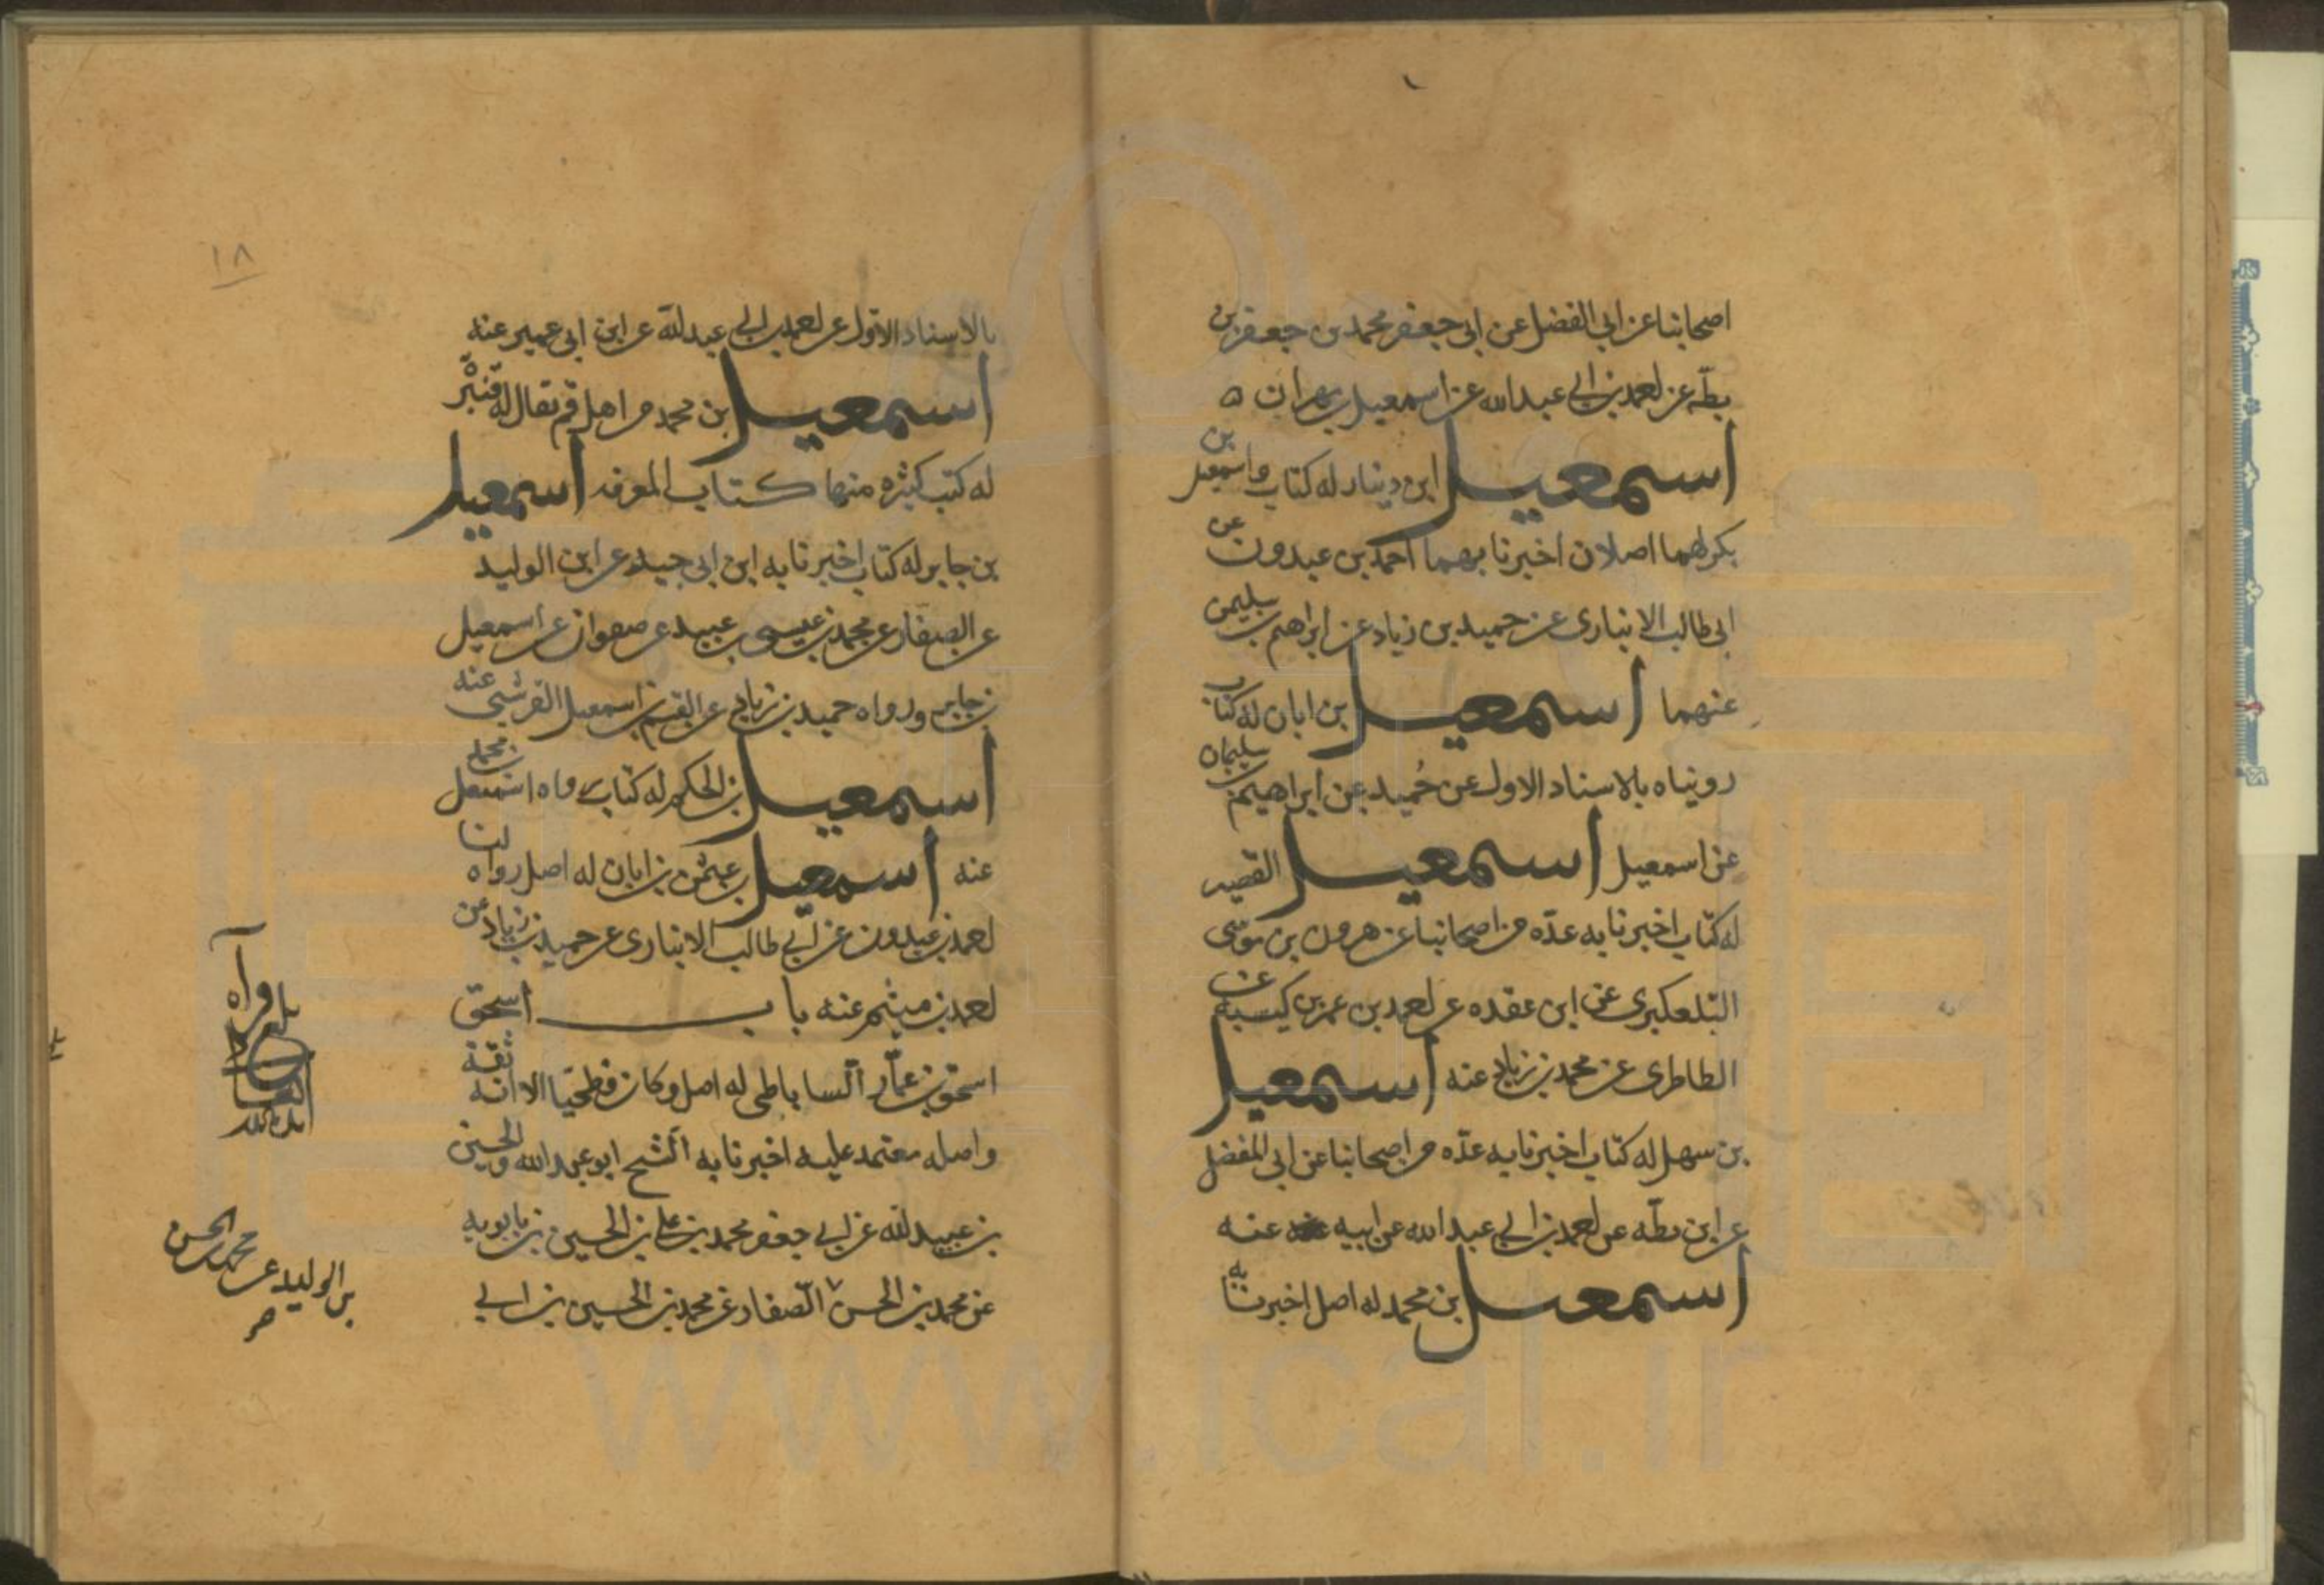 اصحابنا عن ابي الفضل عن ابي جعفر محمد بن جعفر بن
بطّه عن احمد بن ابي عبدالله عن اسمعيل بن مهران ه
اسمعيل ابن دينار له كتاب واسمعيل بن
بكر لهما اصلان اخبرنا بهما احمد بن عبدون عن
ابي طالب الانباري عن حميد بن زياد عن ابراهيم بن سليمن
عنهما اسمعيل بن ابان له كتاب
رويناه بالاسناد الاول عن حُميد عن ابراهيم بن سليمان
عن اسمعيل اسمعيل القصير
له كتاب اخبرنا به عدّه من اصحابنا عن هرون بن موسى
التلعكبري عن ابن عقده عن احمد بن عمر بن كيسبه عن
الطاطري عن محمد بن زياد عنه اسمعيل
بن سهل له كتاب اخبرنا به عدّه من اصحابنا عن ابي المفضل
عن ابن بطّه عن احمد بن ابي عبدالله عن ابيه عنه
اسمعيل بن محمد له اصل اخبرنا به
١٨
بالاسناد الاول عن احمد بن ابي عبدالله عن ابن ابي عمير عنه
اسمعيل بن محمد من اهل قم يقال له قنبرة
له كتب كثيره منها كتاب المعرفه اسمعيل
بن جابر له كتاب اخبرنا به ابن ابي جيد عن ابن الوليد
عن الصفار عن محمد بن عيسى بن عبيد عن صفوان عن اسمعيل
بن جابر ورواه حميد بن زياد عن القسم بن اسمعيل القرشي عنه
اسمعيل بن الحكم له كتاب رواه اسمعيل بن محمد
عنه اسمعيل بن عثمن بن ابان له اصل رواه لنا
احمد بن عبدون عن ابي طالب الانباري عن حميد بن زياد عن
احمد بن ميثم عنه باب اسحق
اسحق بن عمّار الساباطي له اصل وكان فطحيّا الا انه ثقة
واصله معتمد عليه اخبرنا به الشيخ ابو عبدالله والحسين
بن عبيدالله عن ابي جعفر محمد بن علي بن الحسين بن بابويه
عن محمد بن الحسن الصفار عن محمد بن الحسين بن ابي
بن الوليد عن محمد بن الحسن
www.ical.ir